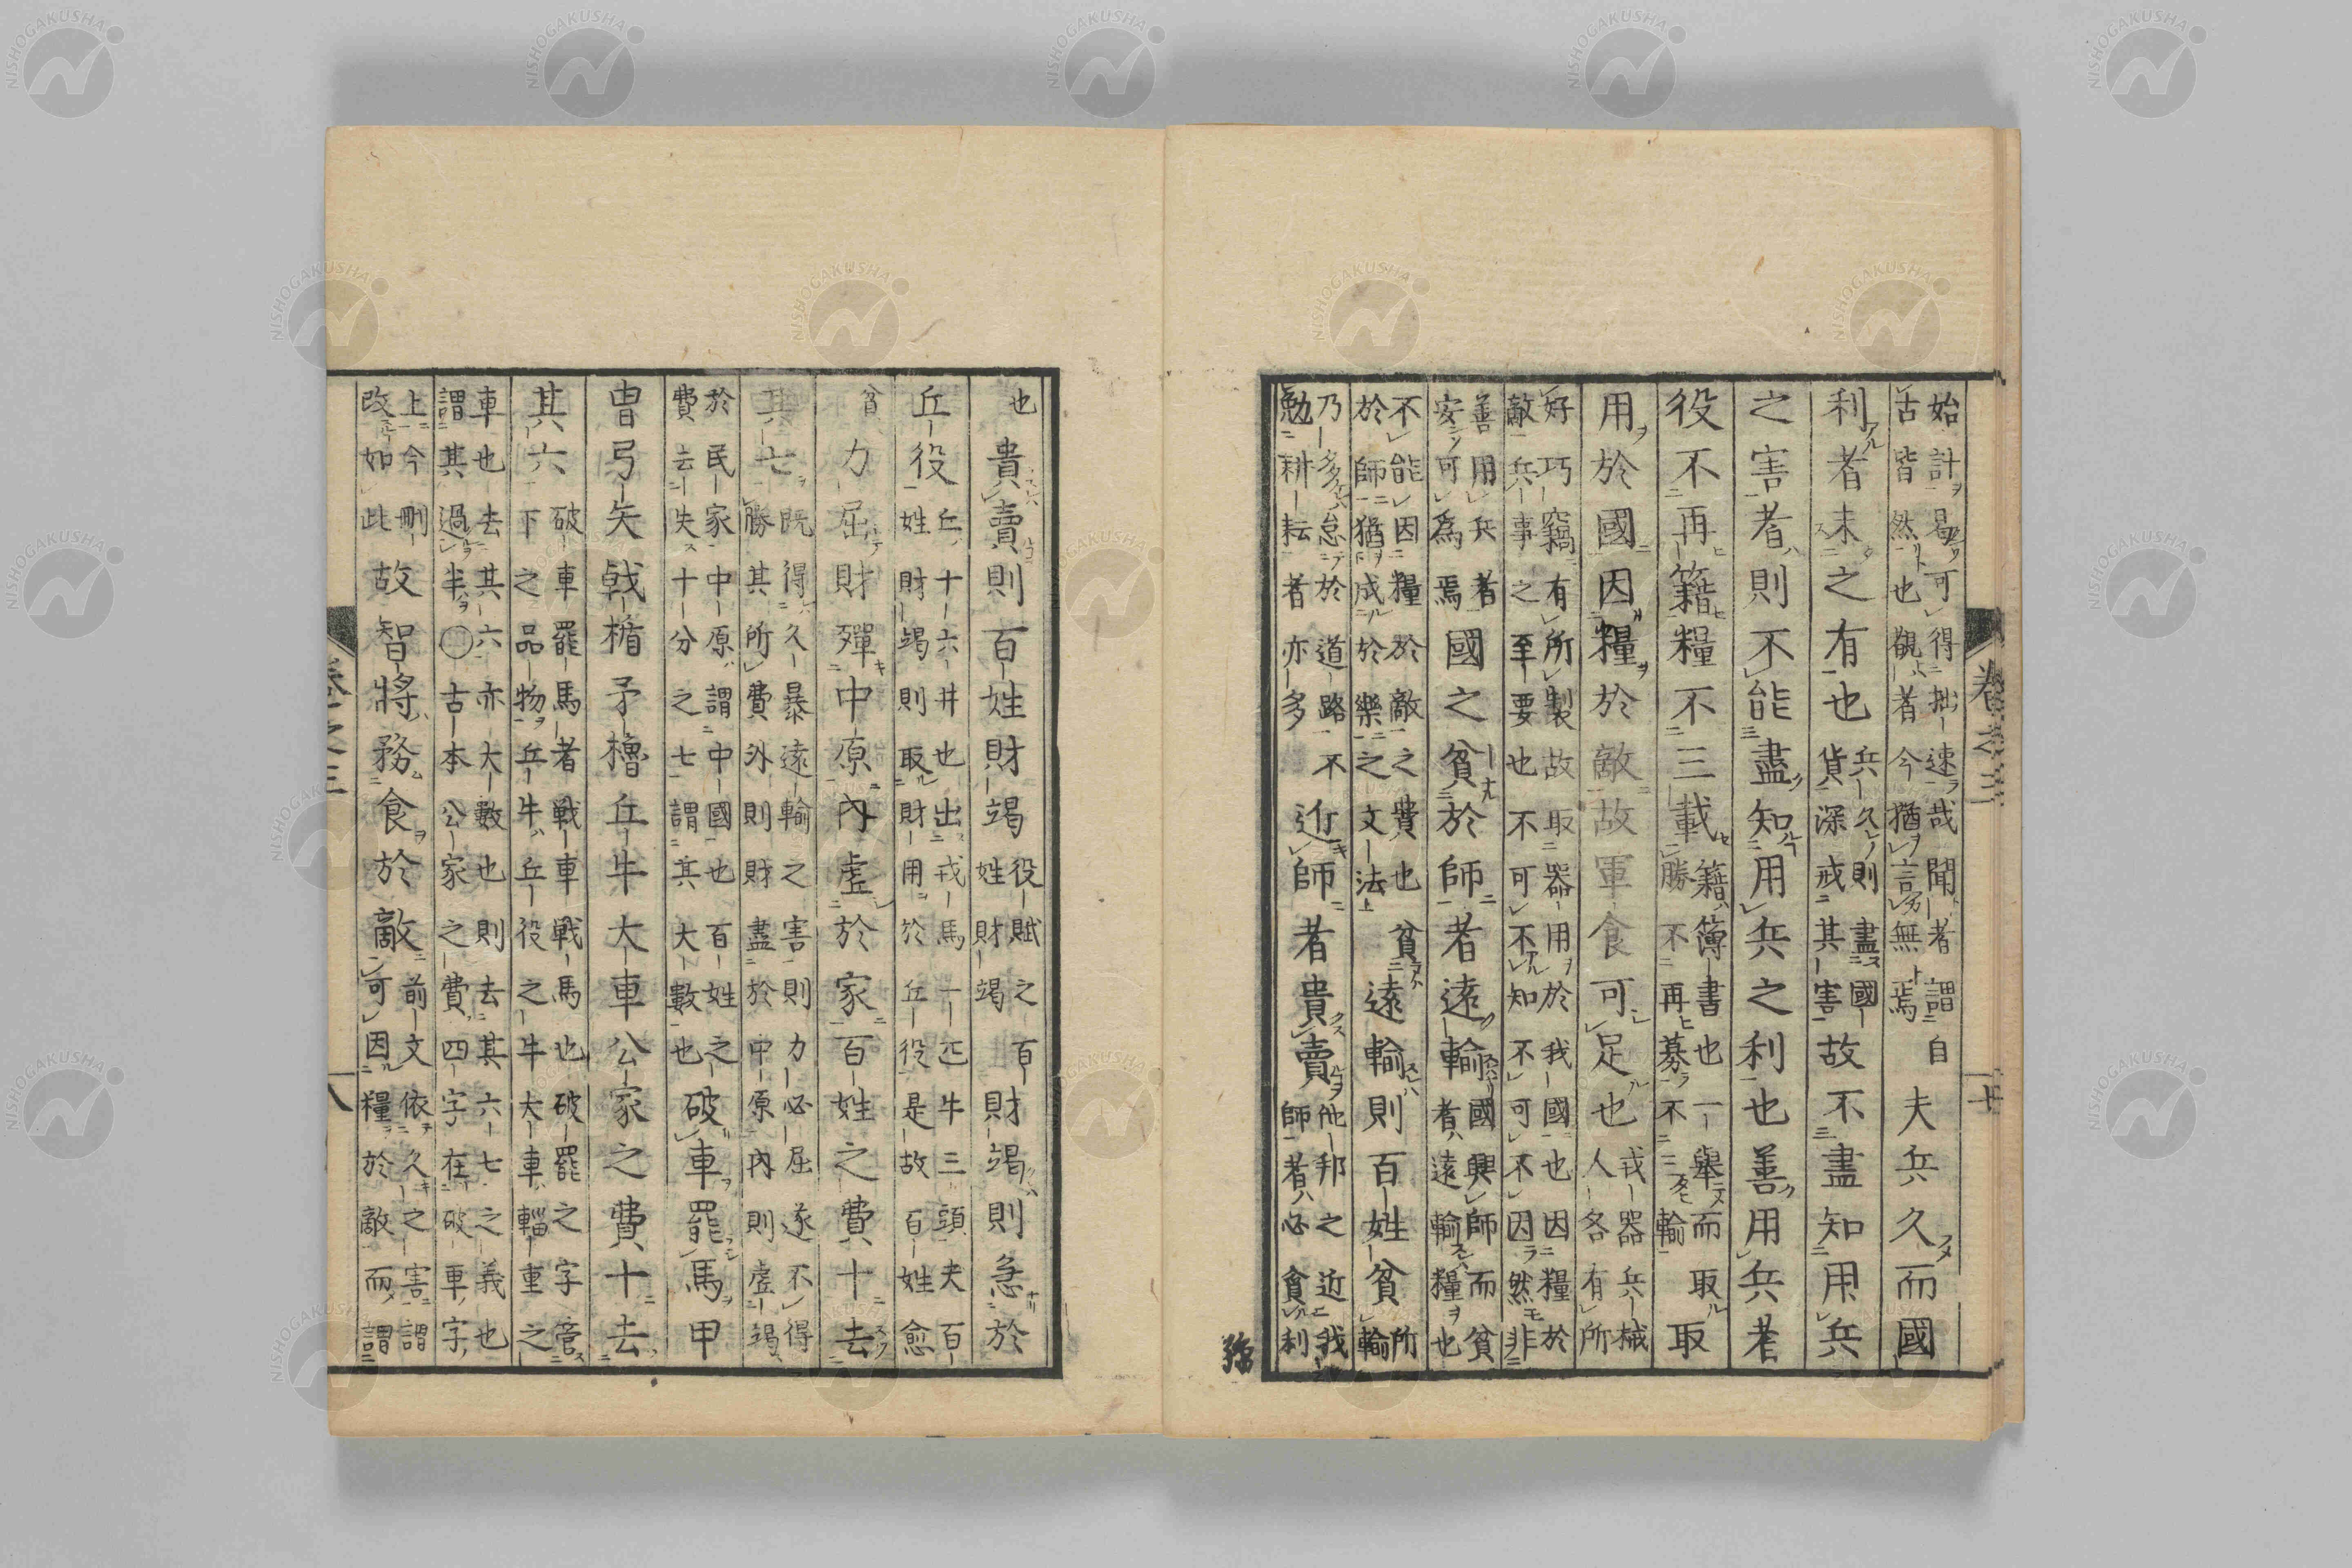 卷之三　十
始計易可得拙速哉聞者謂自
古皆然也觀者今猶言無焉
夫兵久而國
利者未之有也
兵久則盡國
貨深戒其害
故不盡知用兵
之害者則不能盡知用兵之利也善用兵者
役不再籍糧不三載
籍簿書也一舉而取
勝不再募不二輸
取
用於國因糧於敵故軍食可足也
戎器兵械
人各有所
好巧竊有所製故取器用於我國也因糧於
敵兵事之至要也不可不知不可不因然非
善用兵者
安可為焉
國之貧於師者遠輸
國興師而貧
者遠輸糧也
不能因糧於敵之費也貧
於師猶成於樂之文法
遠輸則百姓貧
所
輸
乃多怠於道路不
勉耕耘者亦多
近師者貴賣
他邦之近我
師者必貪利
也
貴賣則百姓財竭
役賦之百
姓財竭
財竭則急於
丘役
丘十六井也出戎馬一匹牛三頭夫百
姓財竭則取財用於丘役是故百姓愈
貧
力屈財殫中原內虛於家百姓之費十去
其七
既得久暴遠輸之害則力必屈遂不得
勝其所費外則財盡於中原內則虛竭
於民家中原謂中國也百姓之
費去失十分之七謂其大數也
破車罷馬甲
冑弓矢戟楯矛櫓丘牛大車公家之費十去
其六
破車罷馬者戰車戰馬也破罷之字管
下之品物丘牛丘役之牛大車輜重之
車也去其六亦大數也則去其六七之義也
謂其過半○古本公家之費四字在破車字
上今刪
改如此
故智將務食於敵
前文依久之害謂
可因糧於敵而謂
卷之三